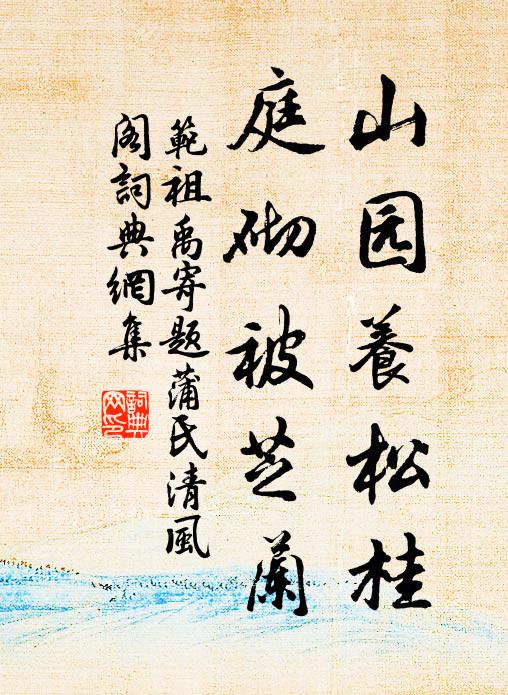 山园養松桂
庭砌被芝蘭
範祖禹寄題蒲氏清風
阁詞典網集
詞典网印